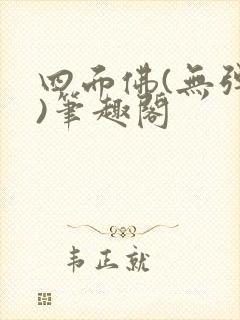 四面佛(無弹
)筆趣閣
韦正就